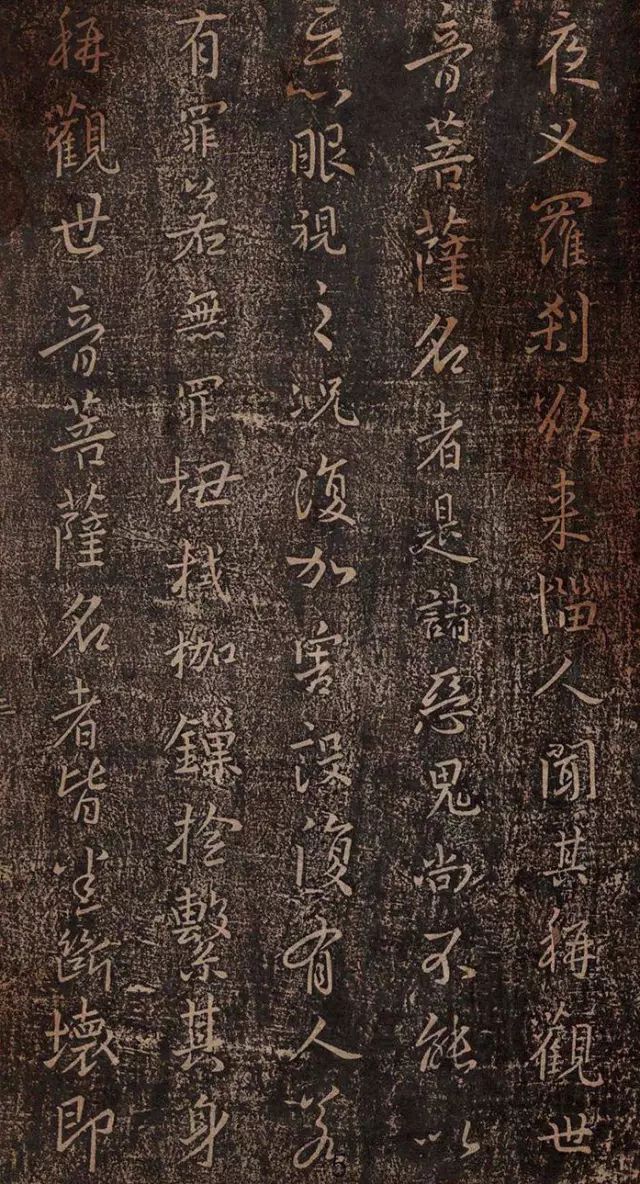 夜叉羅剎欲来惱人聞其稱觀世
音菩薩名者是諸惡鬼尚不能以
惡眼視之況復加害設復有人若
有罪若無罪杻械枷鏁撿繫其身
稱觀世音菩薩名者皆悉斷壞即